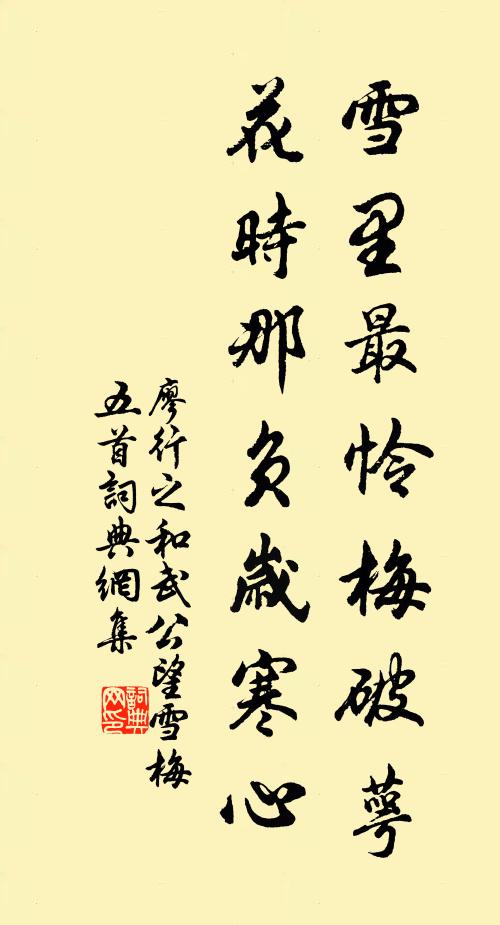 雪里最怜梅破萼
花時那負歲寒心
廖行之和武公望雪梅
五首詞典網集
詞典网印